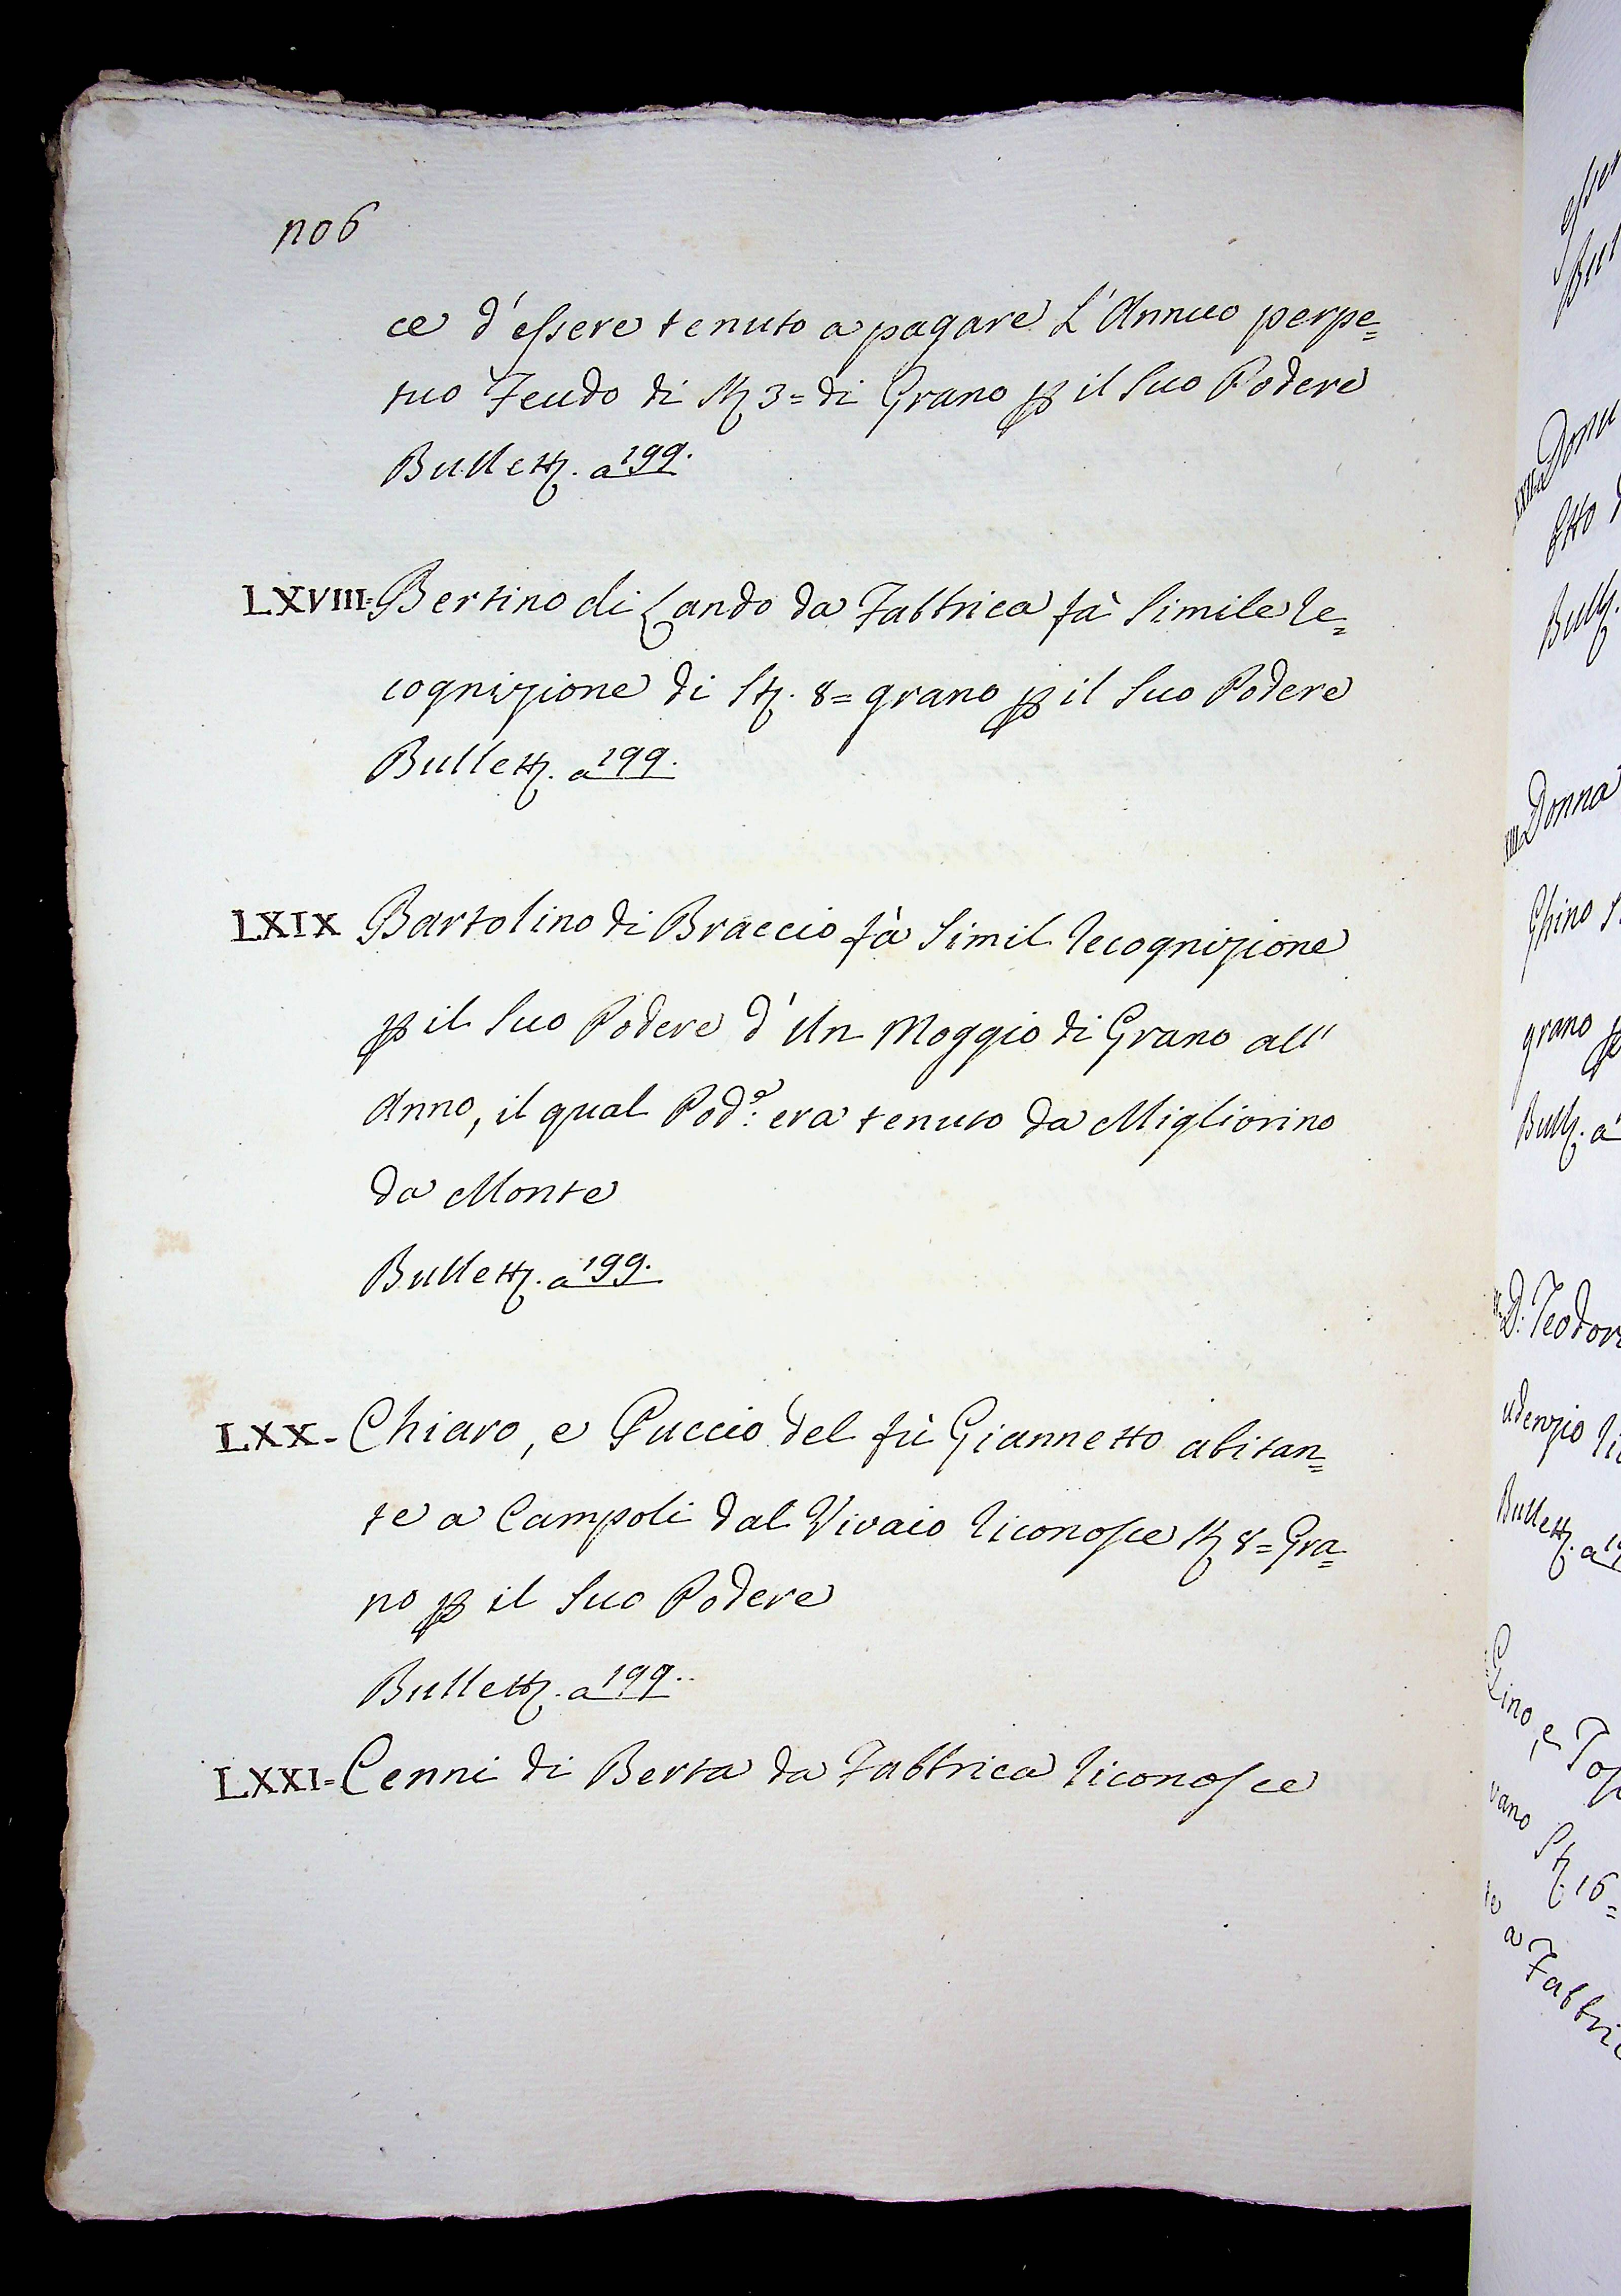 no6
ce d'essere tenuto a pagare L'Annuo perpe=
tuo Feudo di Stz 3= di Grano p il suo Podere
Bullettz. a 199.
LXVIII= Bertino di Lando da Fabbrica fà simile re=
cognizione di Stz. 8= grano p il suo Podere
Bullettz. a 199.
LXIX Bartolino di Braccio fà simil recognizione
p il suo Podere d'Un Moggio di Grano all'
Anno, il qual Pod.e era tenuto da Migliorino
da Monte
Bullettz. a 199.
LXX- Chiaro, e Puccio del fù Giannetto abitan=
te a Campoli dal Vivaio riconosce Stz 8= Gra=
no p il suo Podere
Bullettz. a 199.
LXXI= Cenni di Berta da Fabbrica riconosce
Donna
Ghino
grano p
Bullz. a
D. Teodor
udenzio
Bullettz. a
Lino, e
vano Stz. 16=
te a Fabbri